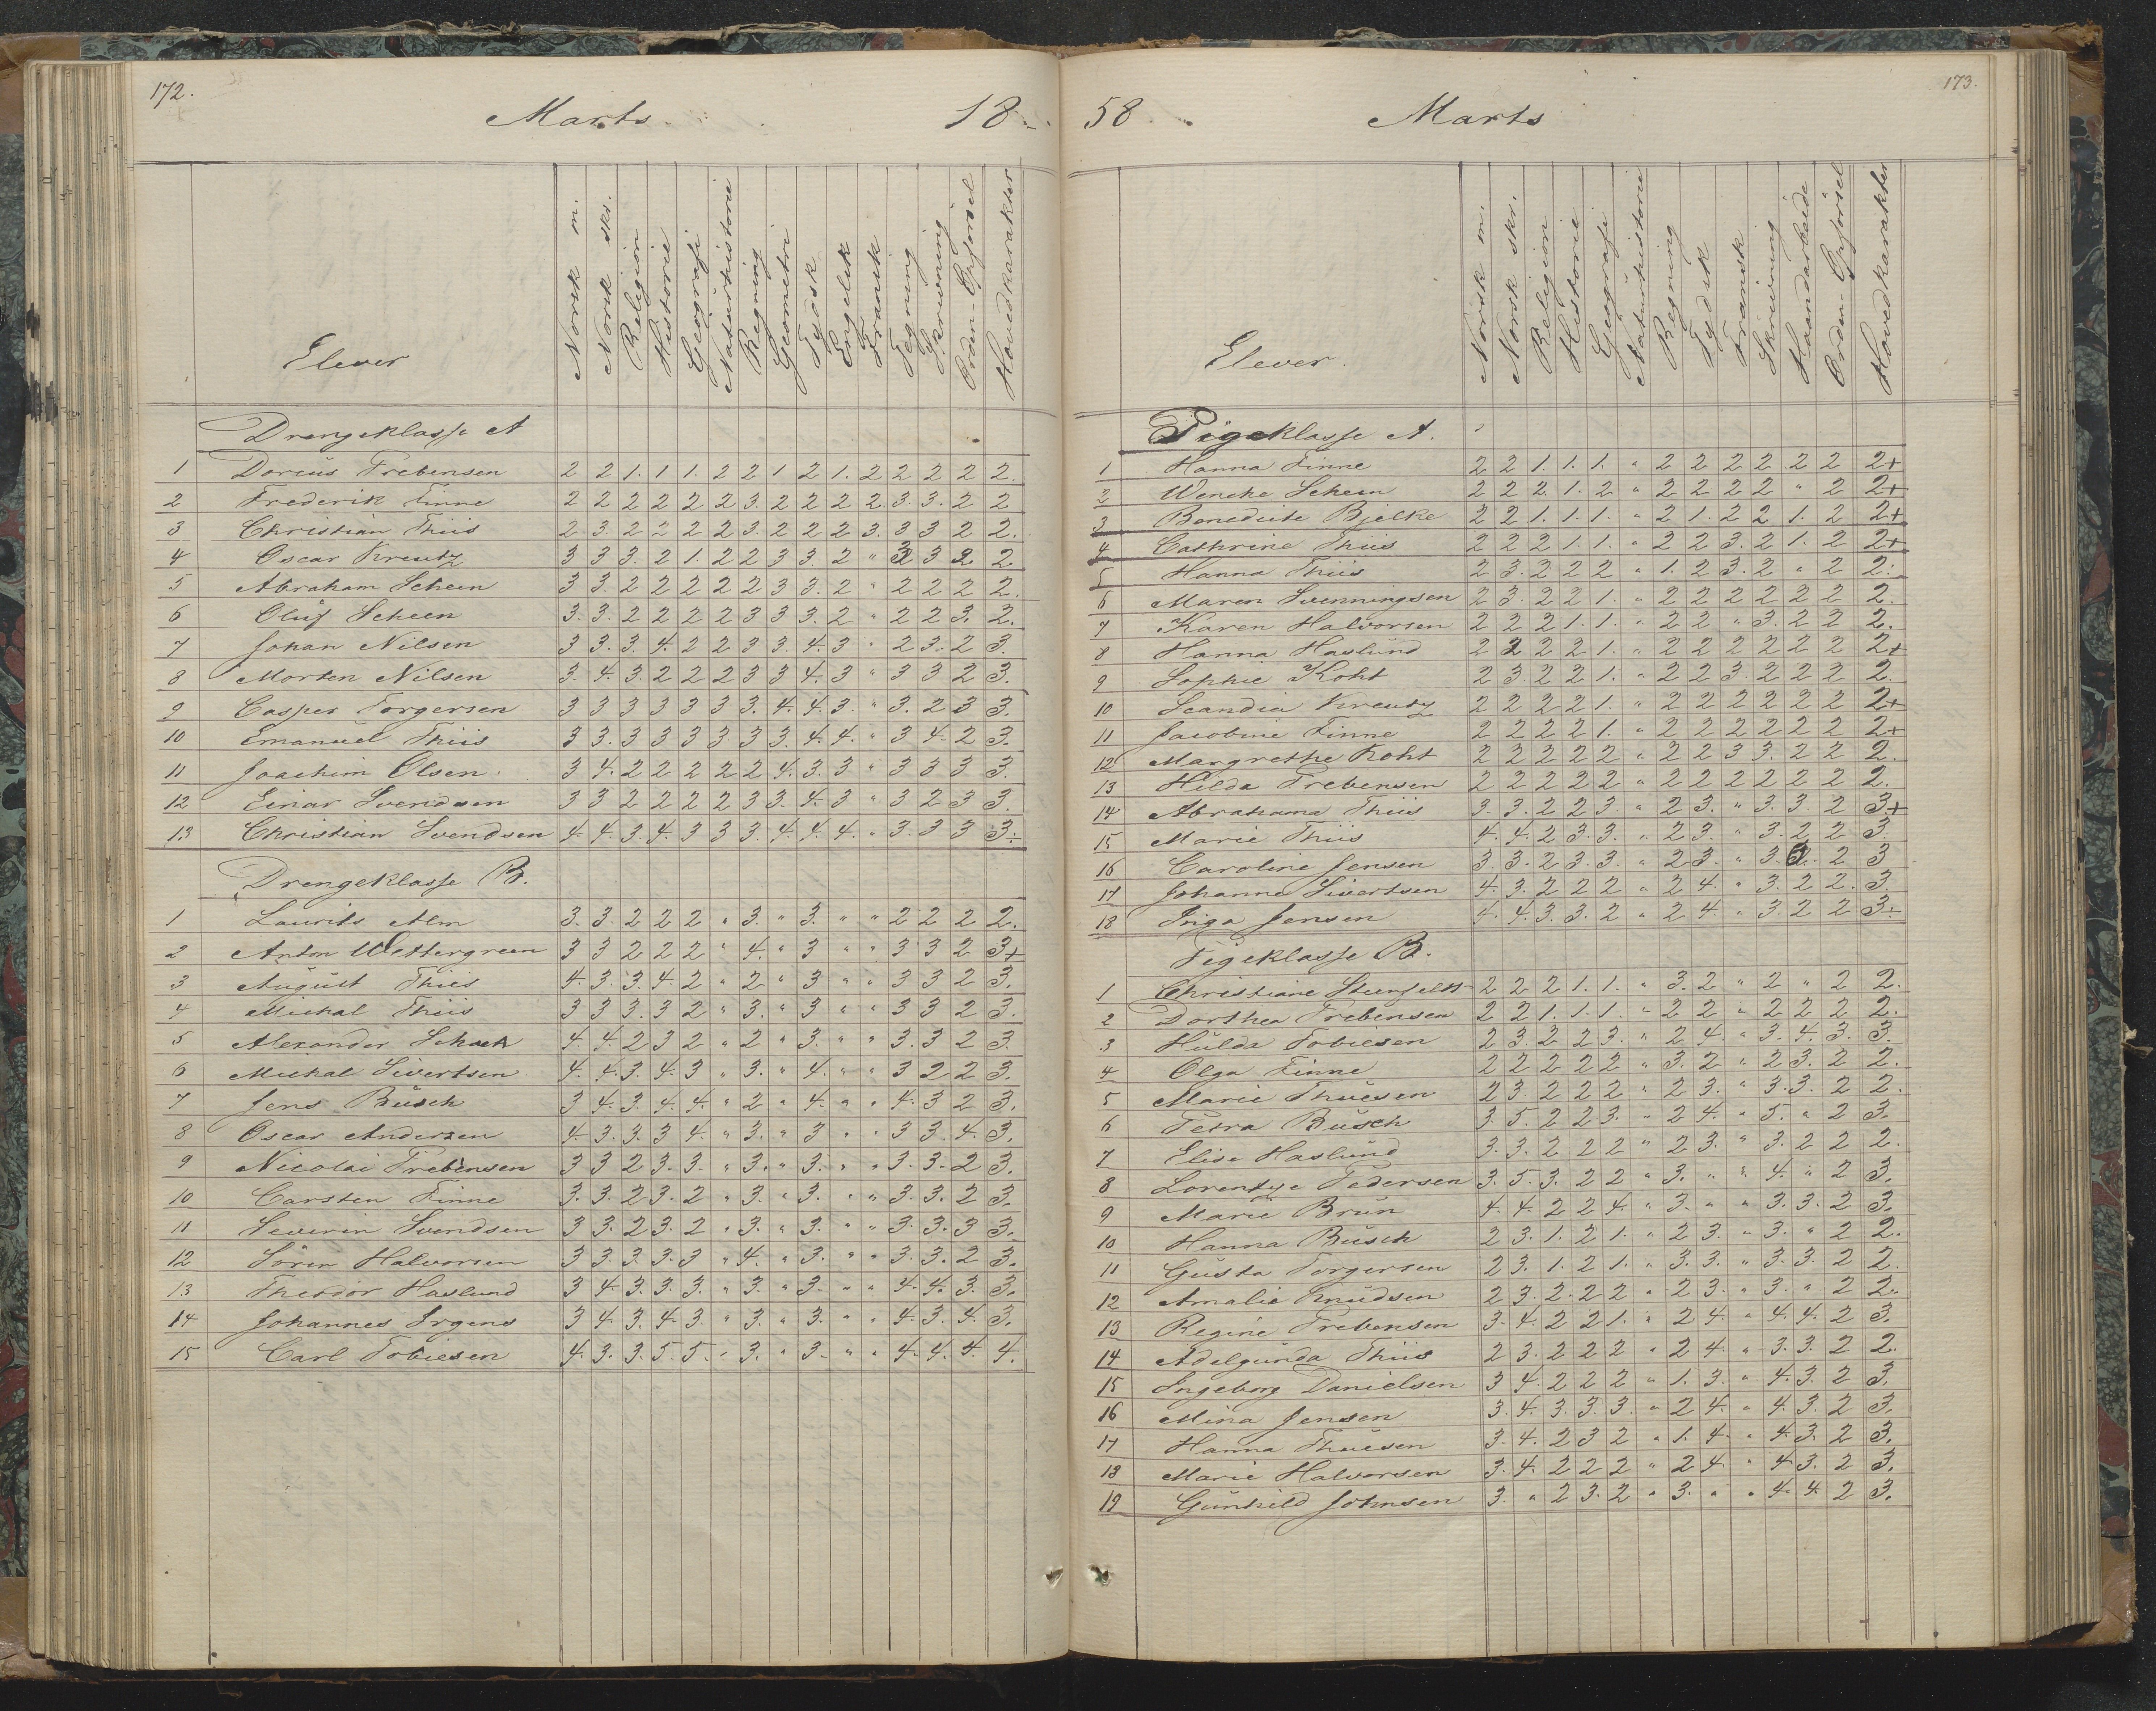 172.
Marts. 18
Elever Norsk m. Norsk skr. Religion Historie Geografi Naturhistorie Regning Geometri Tydsk Engelsk Fransk Tegning Skrivning Orden-Opførsel Hovedkarakter
Drengeklasse A
1 Dorius Trebensen 2 2 1. 1 1. 2 2 1 2 1. 2 2 2 2 2.
2 Frederik Finne 2 2 2 2 2 2 3. 2 2 2 2. 3. 3. 2 2
3 Christian Thiis 2 3. 2 2 2 2 3. 2 2 2 3. 3 3 2 2.
4 Oscar Kreutz 3 3 3. 2 1. 2 2 3 3. 2 " 3 3 2 2
5 Abraham Scheen 3 3. 2 2 2 2 2 3 3. 2 " 2 2 2 2.
6 Oluf Scheen 3. 3. 2 2 2 2 3 3 3. 2 " 2 2 3. 2.
7 Johan Nilsen 3 3. 3. 4. 2 2 3 3. 4. 3 " 2 3. 2 3.
8 Morten Nilsen 3. 4. 3. 2 2 2 3 3 4. 3 " 3 3 2 3.
9 Casper Torgersen 3 3 3 3 3 3 3. 4. 4. 3. " 3. 2 3 3.
10 Emanuel Thiis 3 3. 3 3 3 3. 3 3. 4. 4. " 3 4. 2 3.
11 Joachim Olsen 3 4. 2 2 2 2 2 4. 3. 3 " 3 3 3 3.
12 Einar Svendsen 3 3 2 2 2 2 3 3. 4. 3 " 3 2 3 3.
13 Christian Svendsen 4. 4. 3. 4. 3 3 3. 4. 4. 4. " 3. 3 3 3.
Drengeklasse B.
1 Laurits Alm 3. 3. 2 2 2 " 3. " 3. " " 2 2 2 2.
2 Anton Wettergreen 3 3 2 2 2 " 4. " 3 " " 3 3 2 3+
3 August Thiis 4. 3. 3. 4. 2 " 2 " 3 " " 3 3 2 3.
4 Mickal Thiis 3 3 3. 3 2 " 3. " 3 " " 3 3 2 3.
5 Alexander Schack 4. 4. 2 3 2 " 2 " 3. " " 3. 3 2 3
6 Mickal Sivertsen 4. 4. 3. 4. 3 " 3. " 4. " " 3 2 2 3.
7 Jens Büsch 3 4. 3. 4. 4. " 2 " 4. " " 4. 3 2 3.
8 Oscar Andersen 4. 3. 3. 3 4. " 3. " 3 " " 3 3. 4. 3.
9 Nicolai Trebensen 3 3 2 3. 3. " 3. " 3. " " 3. 3. 2 3.
10 Carsten Finne 3. 3. 2 3. 2 " 3. " 3. " " 3. 3. 2 3.
11 Severin Svendsen 3 3. 2 3. 2 " 3. " 3. " " 3. 3. 3 3.
12 Sören Halvorsen 3 3. 3. 3. 3 " 4. " 3. " " 3. 3. 2 3.
13 Theodor Haslund 3 4. 3. 3. 3. " 3. " 3. " " 4. 4. 3. 3.
14 Johannes Irgens 3 4. 3. 4. 3. " 3. " 3. " " 4. 3. 4. 3.
15 Carl Tobiesen 4. 3. 3. 5. 5. " 3. " 3. " " 4. 4. 4. 4.
173.
58. Marts
Elever. Norsk m. Norsk skr. Religion Historie Geografi Naturhistorie Regning Tydsk Fransk Skrivning Haandarbeide Orden-Opførsel Hovedkarakter
Pigeklasse A.
1 Hanna Finne 2 2 1. 1. 1. " 2 2 2 2 2 2 2+
2 Wencke Scheen 2 2 2. 1. 2 " 2 2 2 2 " 2 2+
3 Benedicte Bjelke 2 2 1. 1. 1. " 2 1. 2 2 1. 2 2+
4 Cathrine Thiis 2 2 2 1. 1. " 2 2 3. 2 1. 2 2+
5 Hanna Thiis 2 3. 2 2 2 " 1. 2 3. 2 " 2 2.
6 Maren Svenningsen 2 3. 2 2 1. " 2 2 2 2 2 2 2.
7 Karen Halvorsen 2 2 2 1. 1. " 2 2 " 3. 2 2 2.
8 Hanna Haslund 2 2 2 2 1. " 2 2 2 2 2 2 2+
9 Sophie Koht 2 3 2 2 1. " 2 2 3. 2 2 2 2.
10 Scandia Kreutz 2 2 2 2 1. " 2 2 2 2 2 2 2+
11 Jacobine Finne 2 2 2 2 1. " 2 2 2 2 2 2 2+
12 Margrethe Koht 2 2 2 2 2 " 2 2 3 3. 2 2 2.
13 Hilda Trebensen 2 2 2 2 2 " 2 2 2 2 2 2 2.
14 Abrahama Thiis 3. 3. 2 2 3 " 2 3. " 3. 3. 2 3+
15 Marie Thiis 4. 4. 2 3. 3. " 2 3. " 3. 2 2 3
16 Caroline Jensen 3. 3. 2 3. 3. " 2 3. " 3. 3. 2 3
17 Johanne Sivertsen 4. 3. 2 2 2 " 2 4. " 3. 2 2. 3.
18 Inga Jensen 4. 4. 3. 3. 2 " 2 4. " 3. 2 2 3.
Pigeklasse B.
1 Christiane 2 2 2 1. 1. " 3. 2 " 2 " 2 2.
2 Dorthea Trebensen 2 2 1. 1. 1. " 2 2 " 2 2 2 2.
3 Hulda Tobiesen 2 3. 2 2 3. " 2 4. " 3. 4. 3. 3.
4 Olga Finne 2 2 2 2 2 " 3. 2 " 2 3. 2 2.
5 Marie Thuesen 2 3. 2 2 2 " 2 3. " 3. 3. 2 2.
6 Petra Büsch 3. 5. 2 2 3. " 2 4. " 5. " 2 3.
7 Elise Haslund 3. 3. 2 2 2 " 2 3. " 3. 2 2 2.
8 Lorentze Pedersen 3. 5. 3. 2 2 " 3. " " 4. " 2 3.
9 Marie Brun 4. 4. 2 2 4. " 3. " " 3. 3. 2 3.
10 Hanna Büsch 2 3. 1. 2 1. " 2 3. " 3. " 2 2.
11 Gusta Torgersen 2 3. 1. 2 1. " 3. 3. " 3. 3. 2 2.
12 Amalie Knudsen 2 3. 2. 2 2 " 2 3. " 3. " 2 2.
13 Regine Trebensen 3. 4. 2 2 1. " 2 4. " 4. 4. 2 3.
14 Adelgunda Thiis 2 3. 2 2 2 " 2 4. " 3. 3. 2 2.
15 Ingeborg Danielsen 3 4. 2 2 2 " 1. 3. " 4. 3. 2 3.
16 Mina Jensen 3. 4. 3. 3. 3. " 2 4. " 4. 3. 2 3.
17 Hanna Thuesen 3. 4. 2 3 2 " 1. 4. " 4. 3. 2 3.
18 Marie Halvorsen 3. 4. 2 2 2 " 2 4. " 4. 3. 2 3.
19 Gunhild Johnsen 3. " 2 3. 2 " 3. " " 4. 4. 2 3.